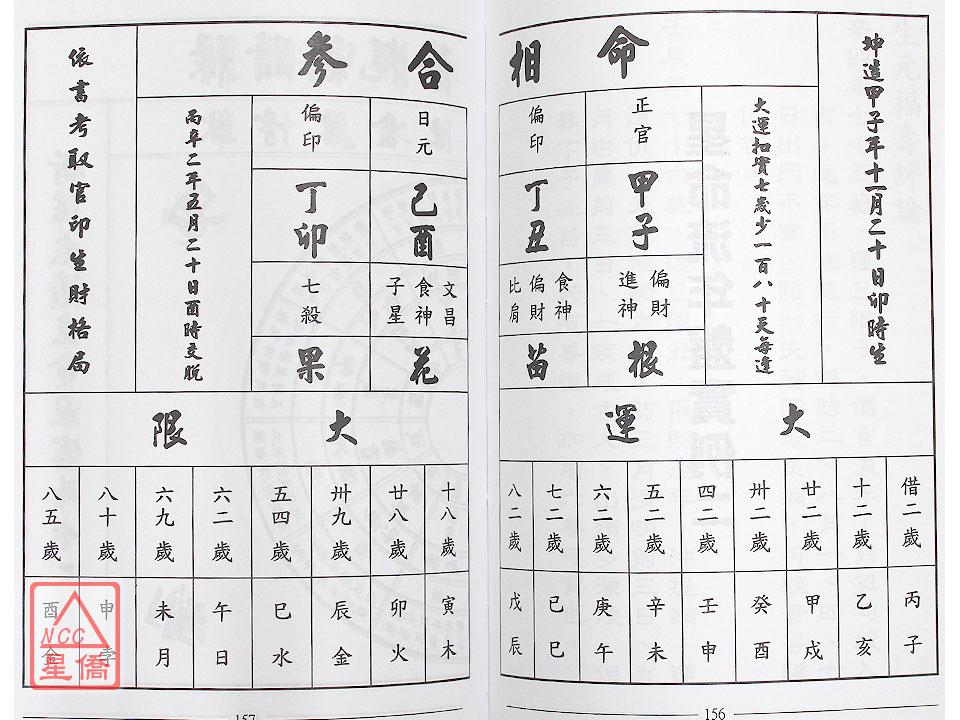 坤造甲子年十一月二十日卯時生
命相
大運扣實七歲少一百八十天每逢
正官
甲子
偏財
進神
根
偏印
丁丑
食神
偏財
比肩
苗
大運
借二歲
十二歲
廿二歲
卅二歲
四二歲
五二歲
六二歲
七二歲
八二歲
丙子
乙亥
甲戌
癸酉
壬申
辛未
庚午
己巳
戊辰
156
合參
日元
己酉
文昌
食神
子星
花
偏印
丁卯
七殺
果
丙辛二年五月二十日酉時交脫
依書考取官印生財格局
大限
十八歲
廿八歲
卅九歲
五四歲
六二歲
六九歲
八十歲
八五歲
寅木
卯火
辰金
巳水
午日
未月
申孛
酉金
157
NCC
星僑